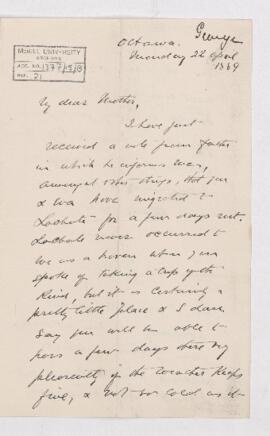 George
McGILL UNIVERSITY
ARCHIVES
ACC. NO.
REF. 21
Ottawa.
Monday 22 April
1889
My dear Mother,
I have just
received a note from Father
in which he informs me,
amongst other things, that you
& Eva have migrated to
Lachute for a few days rest.
Lachute never occurred to
me as a haven when you
spoke of taking a trip of the
kind, but it is certainly a
pretty little place & I dare
say you will be able to
pass a few days there very
pleasantly if the weather keeps
fine, & not so cold as it